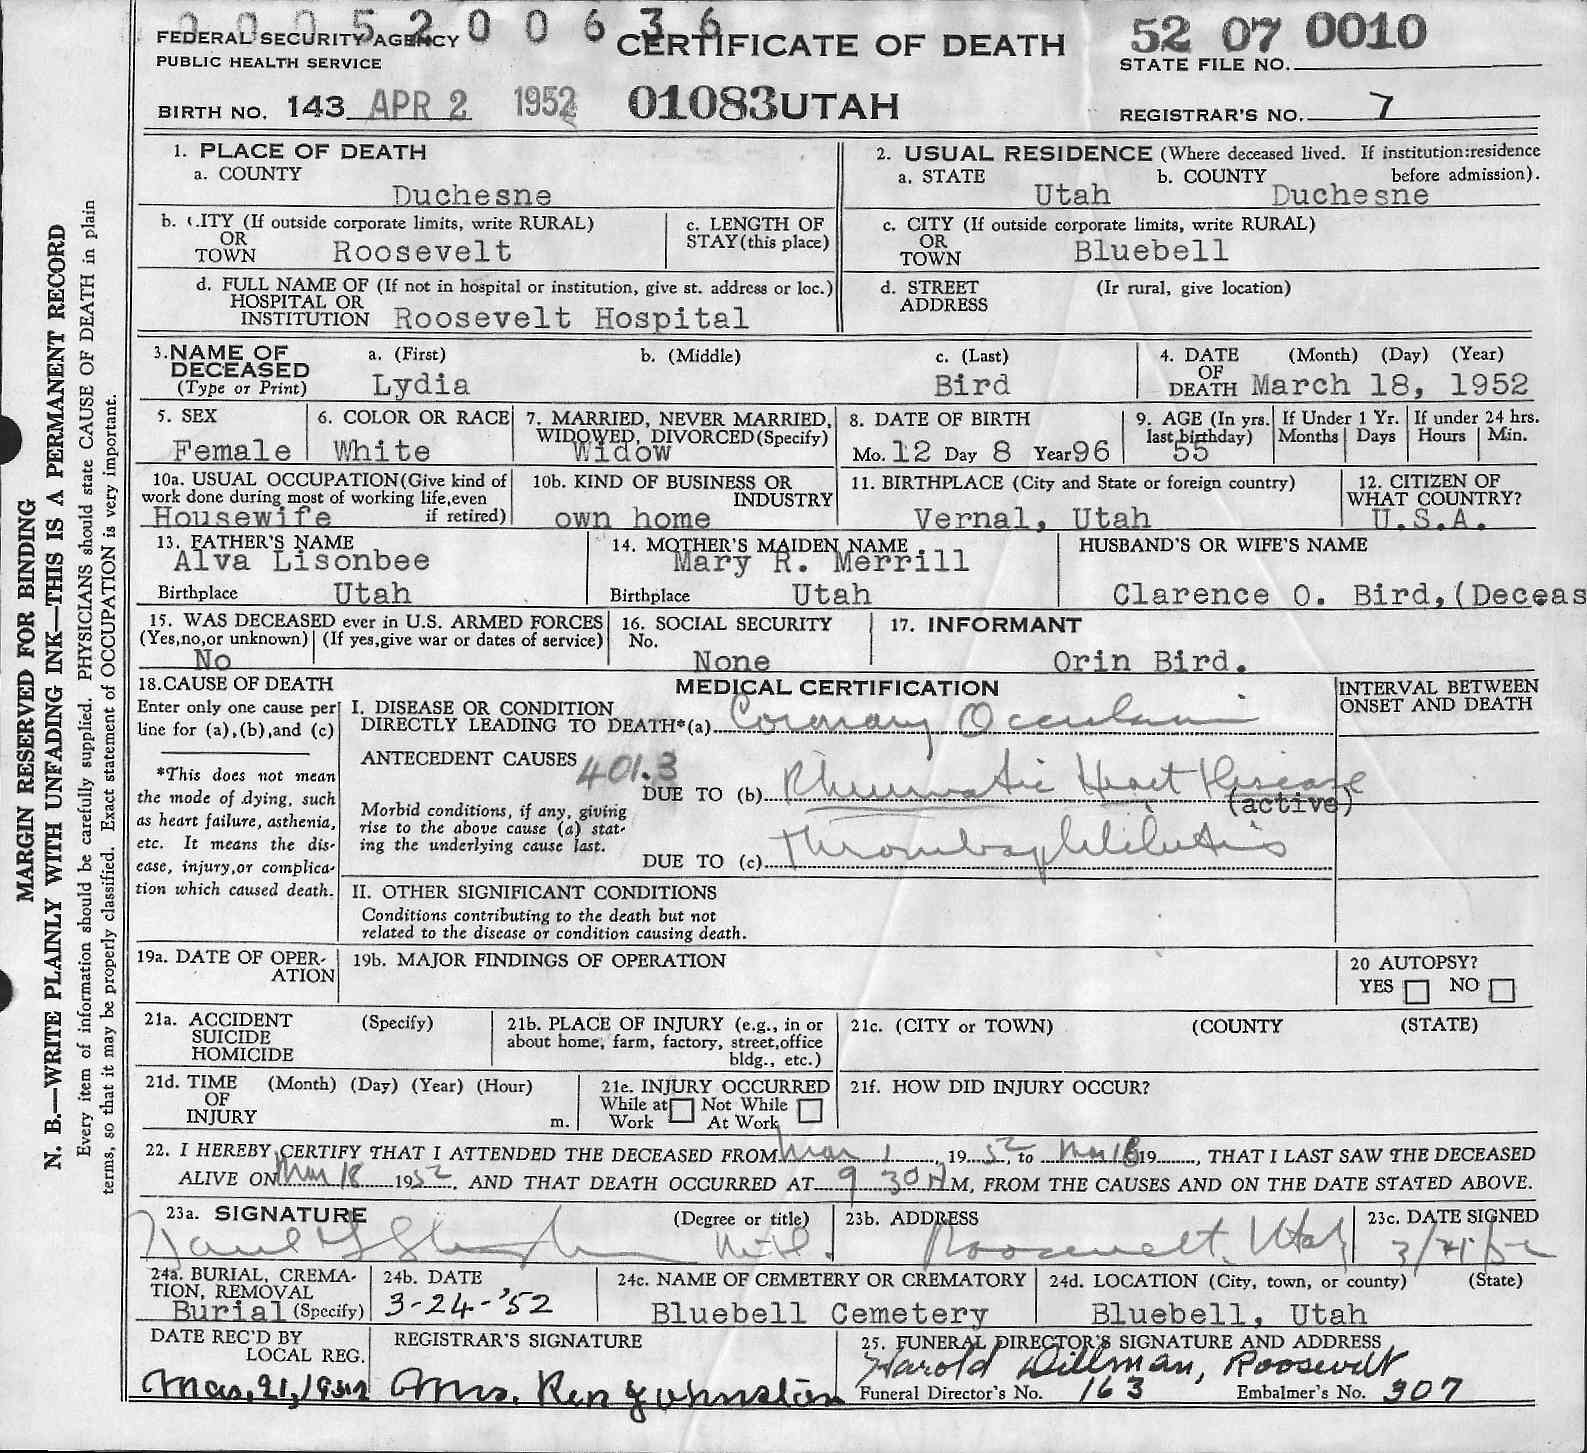 000520 0 0 6 3 6
FEDERAL SECURITY AGENCY
PUBLIC HEALTH SERVICE
CERTIFICATE OF DEATH
52 07 0010
STATE FILE NO.
BIRTH NO. 143 APR 2 1952 01083 UTAH
REGISTRAR'S NO. 7
1. PLACE OF DEATH
a. COUNTY
Duchesne
2. USUAL RESIDENCE (Where deceased lived. If institution:residence before admission).
a. STATE Utah b. COUNTY Duchesne
b. CITY (If outside corporate limits, write RURAL)
OR
TOWN Roosevelt
c. LENGTH OF
STAY (this place)
c. CITY (If outside corporate limits, write RURAL)
OR
TOWN Bluebell
d. FULL NAME OF (If not in hospital or institution, give st. address or loc.)
HOSPITAL OR
INSTITUTION Roosevelt Hospital
d. STREET (Ir rural, give location)
ADDRESS
3. NAME OF
DECEASED
(Type or Print)
a. (First) Lydia
b. (Middle)
c. (Last) Bird
4. DATE (Month) (Day) (Year)
OF
DEATH March 18, 1952
5. SEX
Female
6. COLOR OR RACE
White
7. MARRIED, NEVER MARRIED,
WIDOWED, DIVORCED (Specify)
Widow
8. DATE OF BIRTH
Mo. 12 Day 8 Year 96
9. AGE (In yrs. last birthday)
55
If Under 1 Yr.
Months Days
If under 24 hrs.
Hours Min.
10a. USUAL OCCUPATION (Give kind of
work done during most of working life, even
if retired)
Housewife
10b. KIND OF BUSINESS OR
INDUSTRY
own home
11. BIRTHPLACE (City and State or foreign country)
Vernal, Utah
12. CITIZEN OF
WHAT COUNTRY?
U.S.A.
13. FATHER'S NAME
Alva Lisonbee
Birthplace Utah
14. MOTHER'S MAIDEN NAME
Mary R. Merrill
Birthplace Utah
HUSBAND'S OR WIFE'S NAME
Clarence O. Bird, (Deceas
15. WAS DECEASED ever in U.S. ARMED FORCES
(Yes, no, or unknown) (If yes, give war or dates of service)
No
16. SOCIAL SECURITY
No.
None
17. INFORMANT
Orin Bird.
18. CAUSE OF DEATH
Enter only one cause per
line for (a), (b), and (c)
*This does not mean
the mode of dying, such
as heart failure, asthenia,
etc. It means the dis-
ease, injury, or complica-
tion which caused death.
MEDICAL CERTIFICATION
I. DISEASE OR CONDITION
DIRECTLY LEADING TO DEATH*(a) Coronary Occulsion
ANTECEDENT CAUSES 401.3
Morbid conditions, if any, giving
rise to the above cause (a) stat-
ing the underlying cause last.
DUE TO (b) Rheumatic Heart Disease
(active)
DUE TO (c) Thrombophlebitis
INTERVAL BETWEEN
ONSET AND DEATH
II. OTHER SIGNIFICANT CONDITIONS
Conditions contributing to the death but not
related to the disease or condition causing death.
19a. DATE OF OPER-
ATION
19b. MAJOR FINDINGS OF OPERATION
20 AUTOPSY?
YES NO
21a. ACCIDENT (Specify)
SUICIDE
HOMICIDE
21b. PLACE OF INJURY (e.g., in or
about home, farm, factory, street, office
bldg., etc.)
21c. (CITY or TOWN) (COUNTY (STATE)
21d. TIME (Month) (Day) (Year) (Hour)
OF
INJURY m.
21e. INJURY OCCURRED
While at Work Not While At Work
21f. HOW DID INJURY OCCUR?
22. I HEREBY CERTIFY THAT I ATTENDED THE DECEASED FROM Mar 1, 1952, to Mar 18 19, THAT I LAST SAW THE DECEASED
ALIVE ON Mar 18 1952, AND THAT DEATH OCCURRED AT 9 30 M, FROM THE CAUSES AND ON THE DATE STATED ABOVE.
23a. SIGNATURE (Degree or title)
M.D.
23b. ADDRESS
Roosevelt, Utah
23c. DATE SIGNED
24a. BURIAL, CREMA-
TION, REMOVAL
Burial (Specify)
24b. DATE
3-24-'52
24c. NAME OF CEMETERY OR CREMATORY
Bluebell Cemetery
24d. LOCATION (City, town, or county) (State)
Bluebell, Utah
DATE REC'D BY
LOCAL REG.
Mar, 21, 1952
REGISTRAR'S SIGNATURE
Mrs. Ren J Johnston
25. FUNERAL DIRECTOR'S SIGNATURE AND ADDRESS
Harold Dillman, Roosevelt
Funeral Director's No. 163 Embalmer's No. 307
MARGIN RESERVED FOR BINDING
N. B.—WRITE PLAINLY WITH UNFADING INK—THIS IS A PERMANENT RECORD
Every item of information should be carefully supplied. PHYSICIANS should state CAUSE OF DEATH in plain
terms, so that it may be properly classified. Exact statement of OCCUPATION is very important.